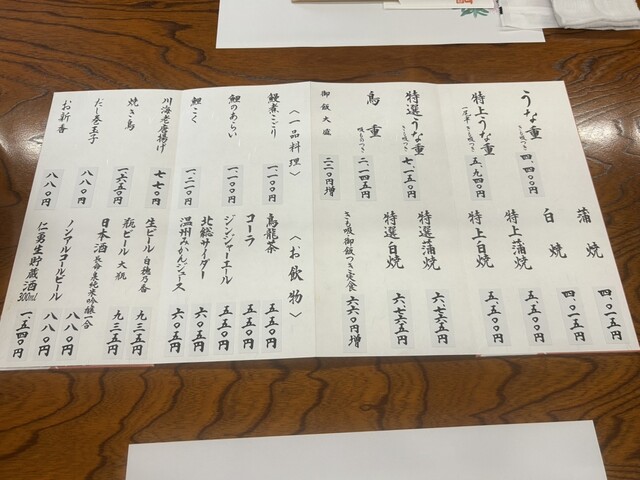 うな重
きも吸つき
四、四〇〇円
特上うな重
一尾半 きも吸つき
五、九四〇円
特選うな重
きも吸つき
七、一五〇円
鳥重
吸ものつき
二、一四五円
御飯大盛
二二〇円増
蒲焼
四、〇一五円
白焼
四、〇一五円
特上蒲焼
五、五〇〇円
特上白焼
五、五〇〇円
特選蒲焼
六、七六五円
特選白焼
六、七六五円
きも吸御飯つき定食
六六〇円増
〈一品料理〉
鰻煮こごり
一、一〇〇円
鯉のあらい
一、一〇〇円
鯉こく
一、二一〇円
川海老唐揚げ
七七〇円
焼き鳥
一、六五〇円
だし巻玉子
八八〇円
お新香
八八〇円
〈お飲物〉
烏龍茶
五五〇円
コーラ
五五〇円
ジンジャーエール
五五〇円
北総サイダー
六〇五円
温州みかんジュース
六〇五円
生ビール 白穂乃香
九三五円
瓶ビール 大瓶
九三五円
日本酒 長命泉純米吟醸一合
八八〇円
ノンアルコールビール
八八〇円
仁勇生貯蔵酒 300ml
一、五四〇円